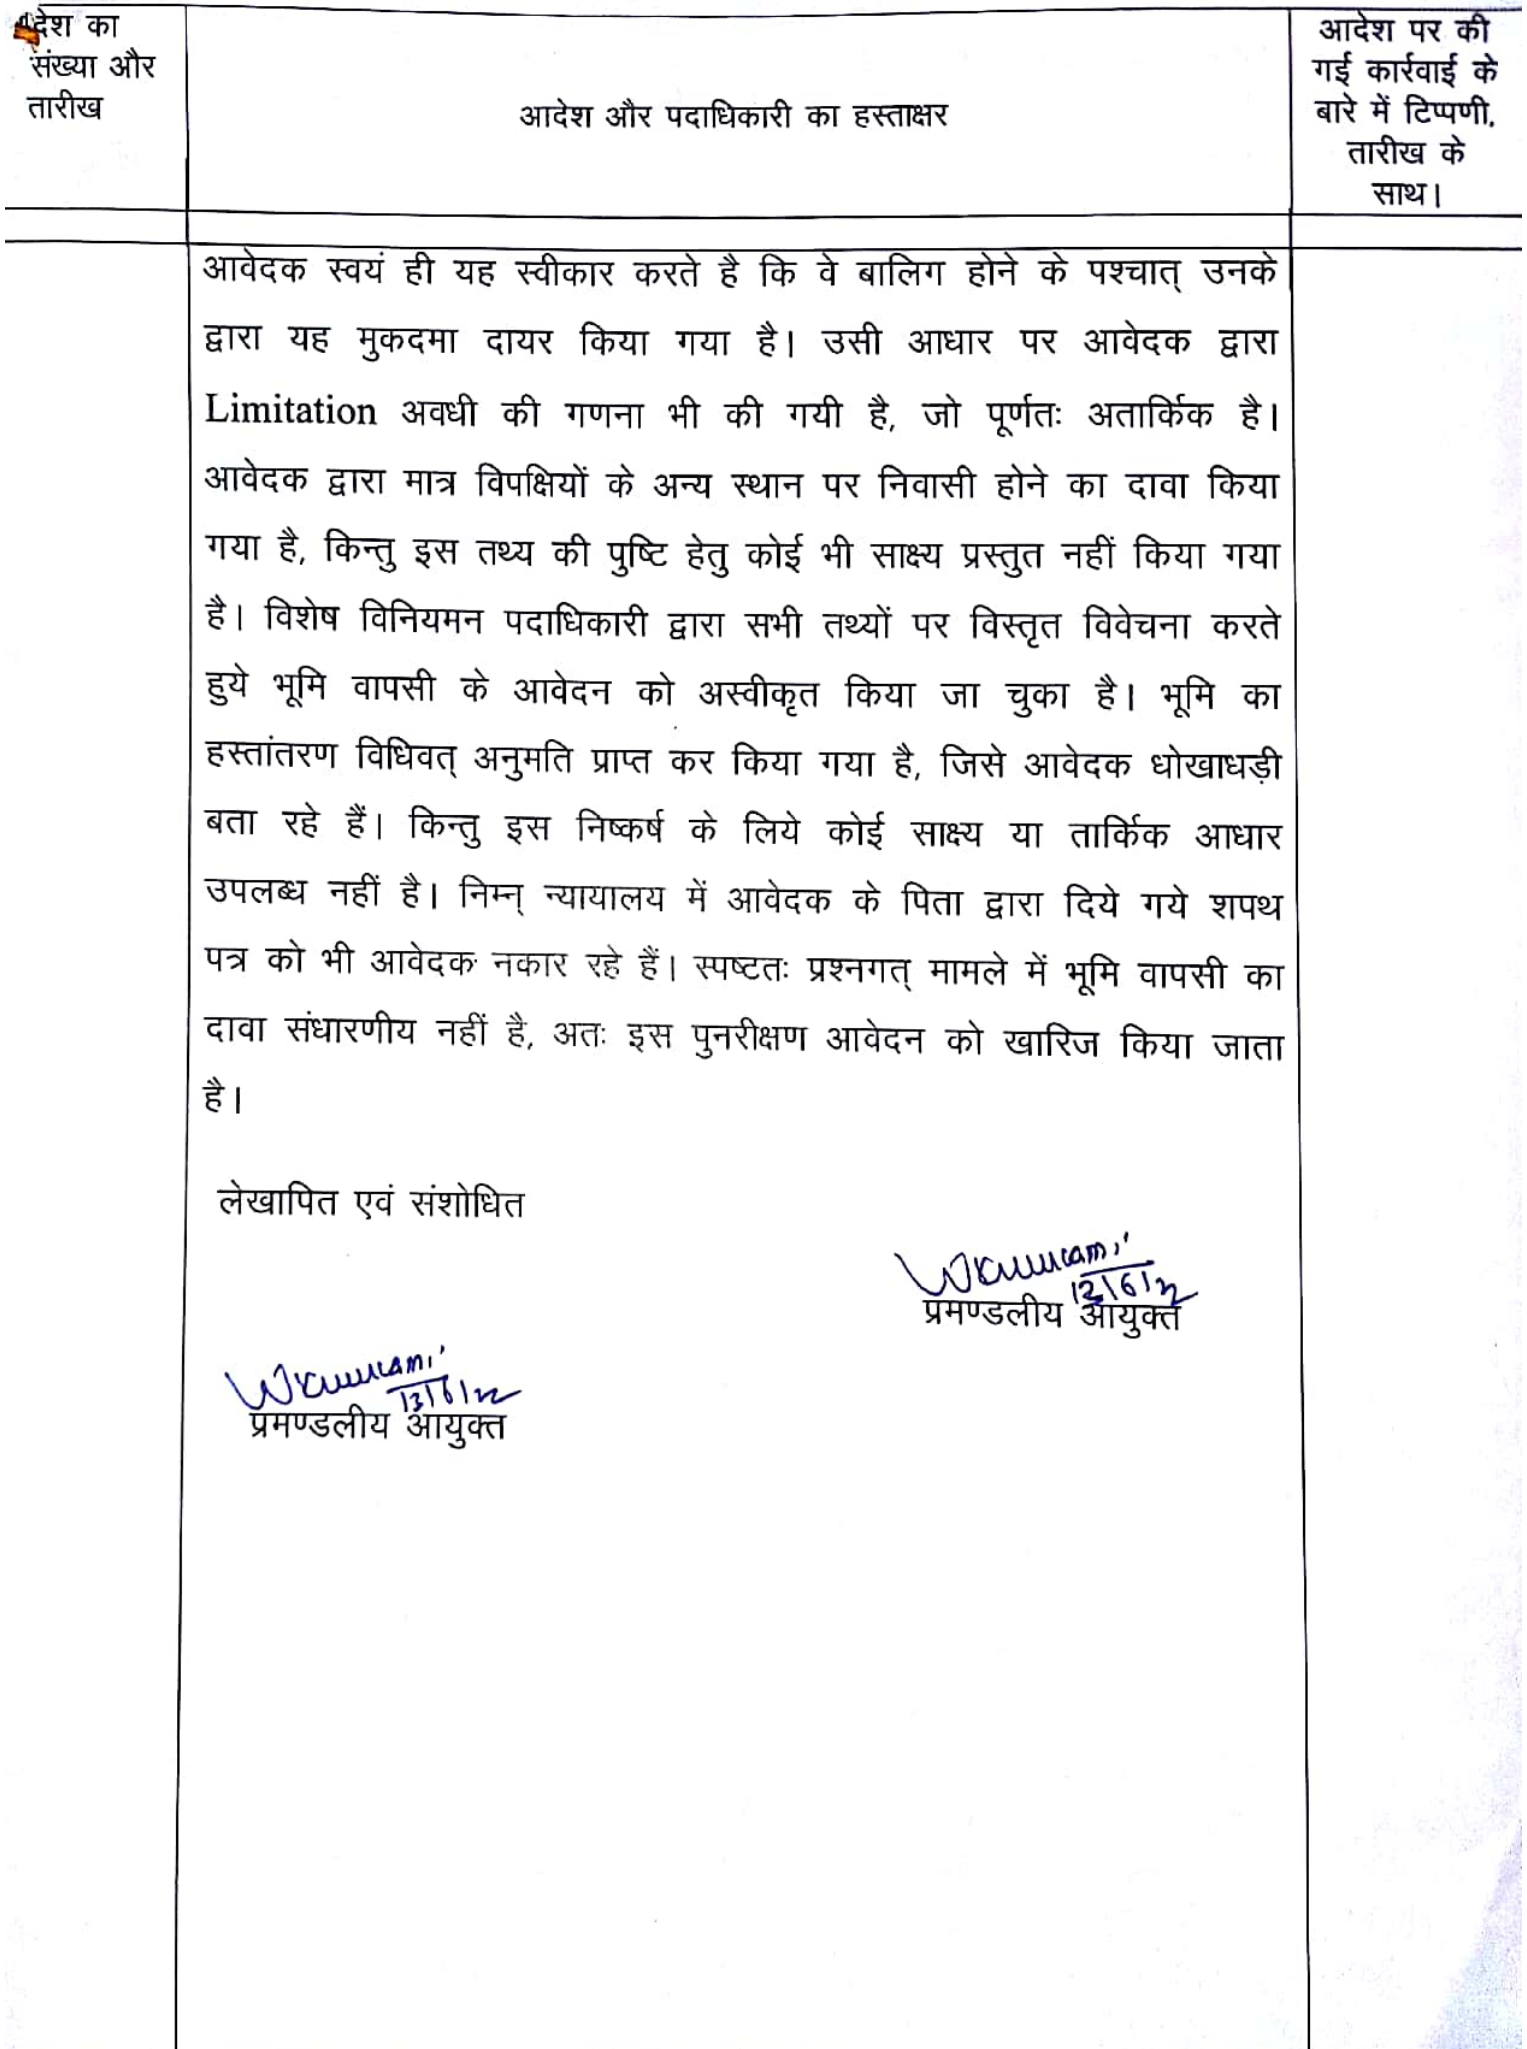 देश का
संख्या और
तारीख
आदेश और पदाधिकारी का हस्ताक्षर
आदेश पर की
गई कार्रवाई के
बारे में टिप्पणी,
तारीख के
साथ।
आवेदक स्वयं ही यह स्वीकार करते है कि वे बालिग होने के पश्चात् उनके
द्वारा यह मुकदमा दायर किया गया है। उसी आधार पर आवेदक द्वारा
Limitation अवधी की गणना भी की गयी है, जो पूर्णतः अतार्किक है।
आवेदक द्वारा मात्र विपक्षियों के अन्य स्थान पर निवासी होने का दावा किया
गया है, किन्तु इस तथ्य की पुष्टि हेतु कोई भी साक्ष्य प्रस्तुत नहीं किया गया
है। विशेष विनियमन पदाधिकारी द्वारा सभी तथ्यों पर विस्तृत विवेचना करते
हुये भूमि वापसी के आवेदन को अस्वीकृत किया जा चुका है। भूमि का
हस्तांतरण विधिवत् अनुमति प्राप्त कर किया गया है, जिसे आवेदक धोखाधड़ी
बता रहे हैं। किन्तु इस निष्कर्ष के लिये कोई साक्ष्य या तार्किक आधार
उपलब्ध नहीं है। निम्न् न्यायालय में आवेदक के पिता द्वारा दिये गये शपथ
पत्र को भी आवेदक नकार रहे हैं। स्पष्टतः प्रश्नगत् मामले में भूमि वापसी का
दावा संधारणीय नहीं है, अतः इस पुनरीक्षण आवेदन को खारिज किया जाता
है।
लेखापित एवं संशोधित
प्रमण्डलीय आयुक्त
13/6/22
प्रमण्डलीय आयुक्त